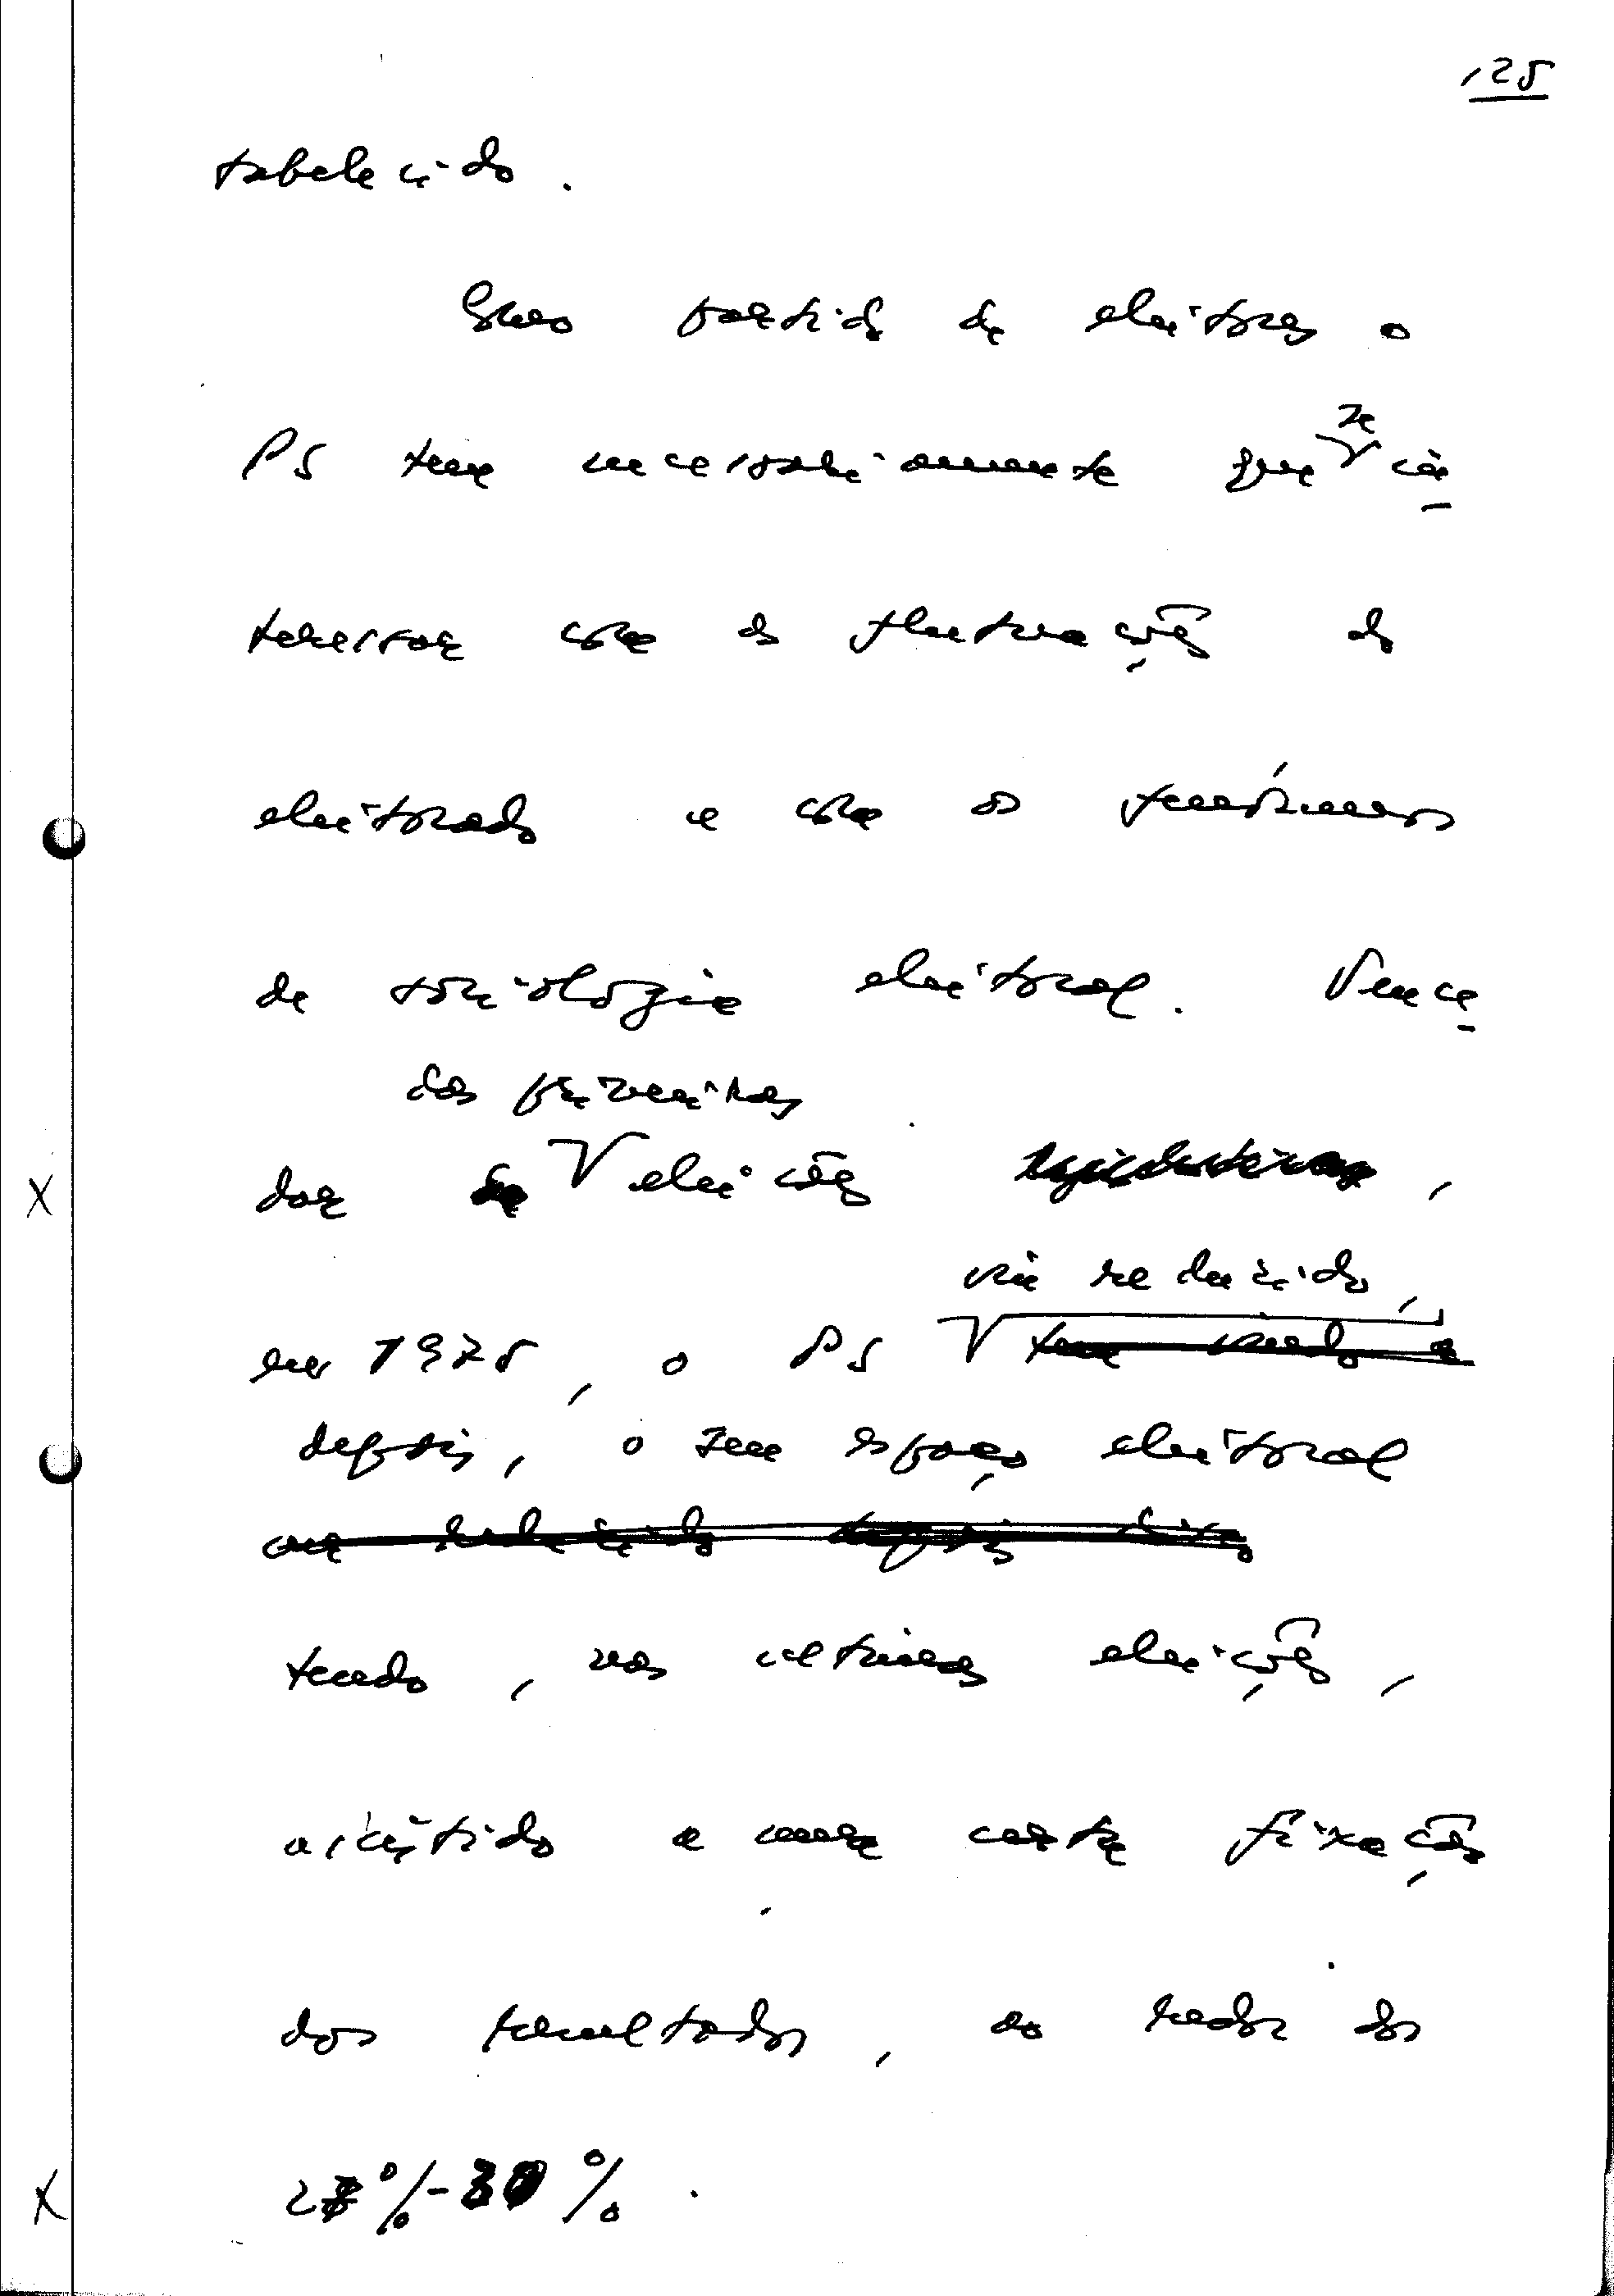 125
tabelecido.
Como partido de eleitores o
PS tem necessariamente que se in-
teressar com as flutuações do
eleitorado e com os fenómenos
de sociologia eleitoral. Vence-
das primeiras
dor eleições,
viu reduzido,
em 1975, o PS tem visto o
depois, o seu espaço eleitoral
tendo, nas últimas eleições,
assistido a uma certa fixação
dos resultados, ao redor dos
28%-30%.
X
X